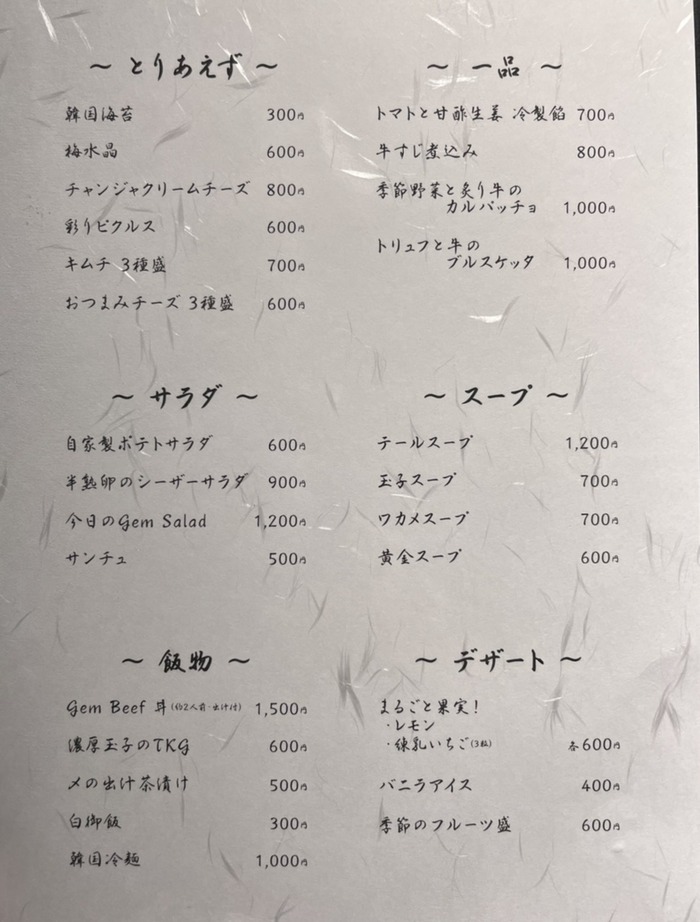 ～ とりあえず ～
韓国海苔 300円
梅水晶 600円
チャンジャクリームチーズ 800円
彩りピクルス 600円
キムチ 3種盛 700円
おつまみチーズ 3種盛 600円
～ 一品 ～
トマトと甘酢生姜 冷製餡 700円
牛すじ煮込み 800円
季節野菜と炙り牛の
カルパッチョ 1,000円
トリュフと牛の
ブルスケッタ 1,000円
～ サラダ ～
自家製ポテトサラダ 600円
半熟卵のシーザーサラダ 900円
今日のGem Salad 1,200円
サンチュ 500円
～ スープ ～
テールスープ 1,200円
玉子スープ 700円
ワカメスープ 700円
黄金スープ 600円
～ 飯物 ～
Gem Beef 丼(約2人前・出汁付) 1,500円
濃厚玉子のTKG 600円
〆の出汁茶漬け 500円
白御飯 300円
韓国冷麺 1,000円
～ デザート ～
まるごと果実！
・レモン
・練乳いちご(3粒) 各600円
バニラアイス 400円
季節のフルーツ盛 600円